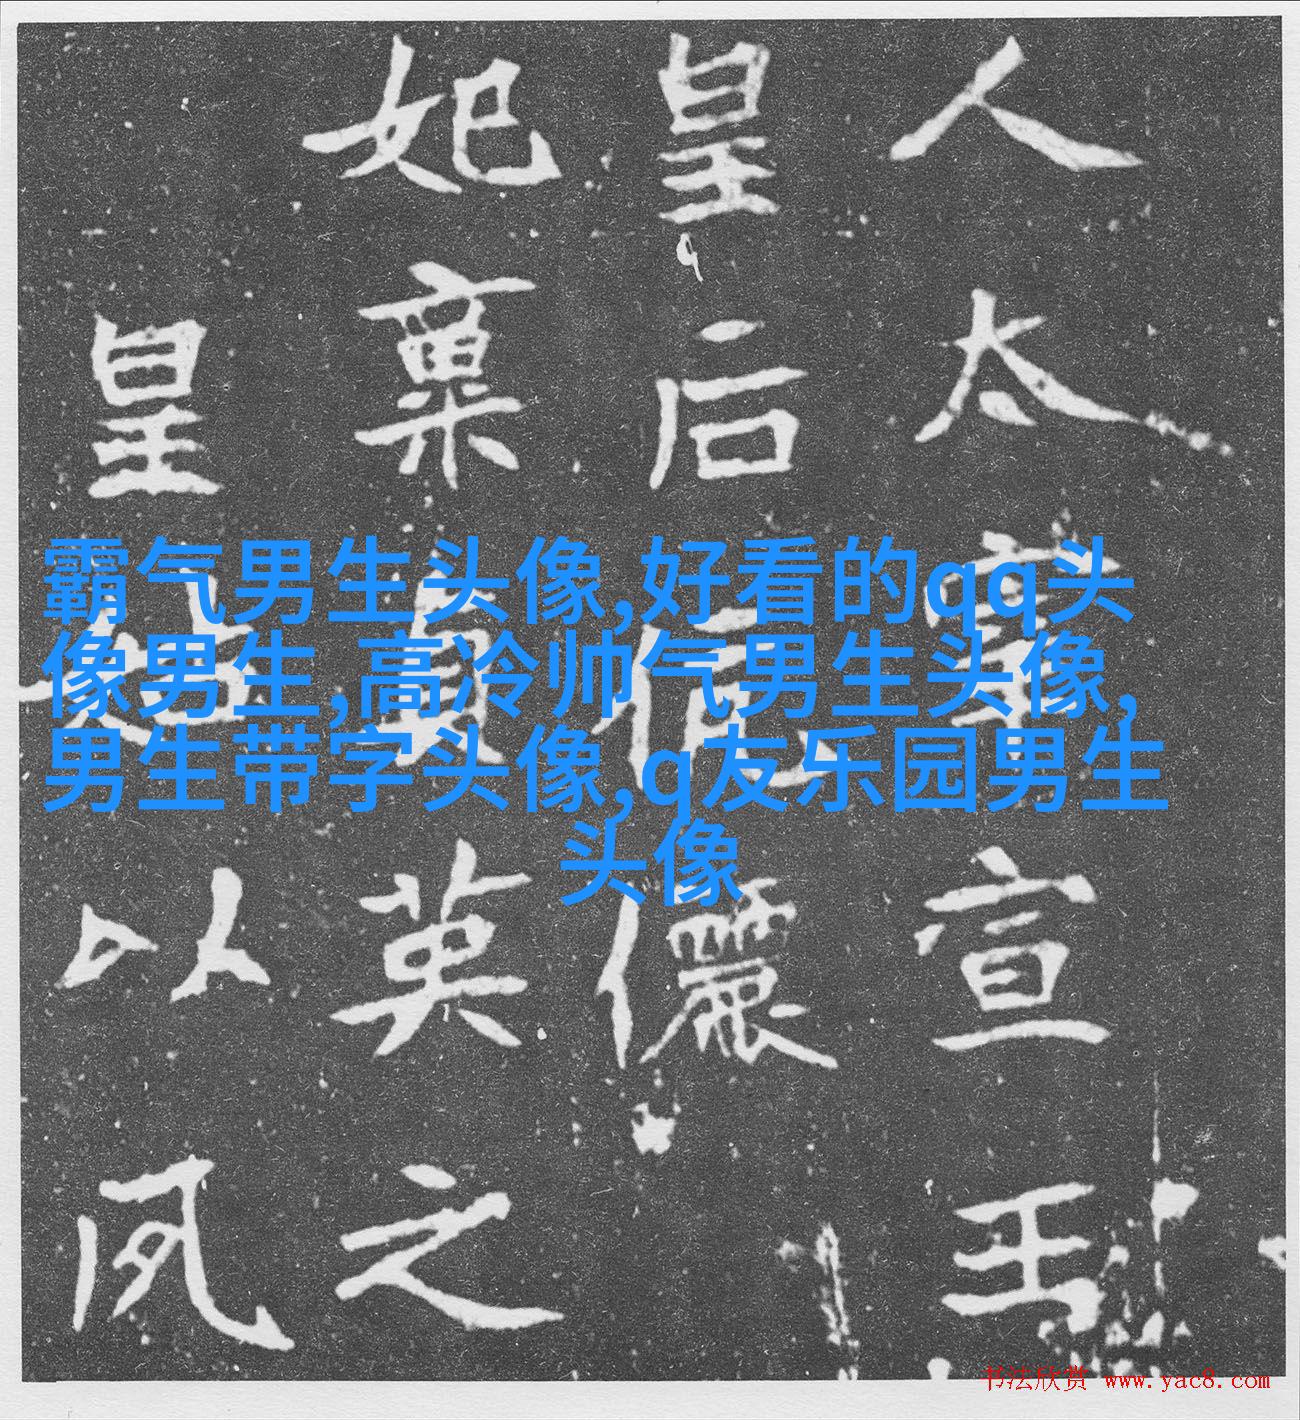 人太宣王
皇后儷
妃稟英之
皇以夙
霸气男生头像,好看的qq头
像男生,高冷帅气男生头像,
男生带字头像,q友乐园男生
头像
书法欣赏 www.yac8.com